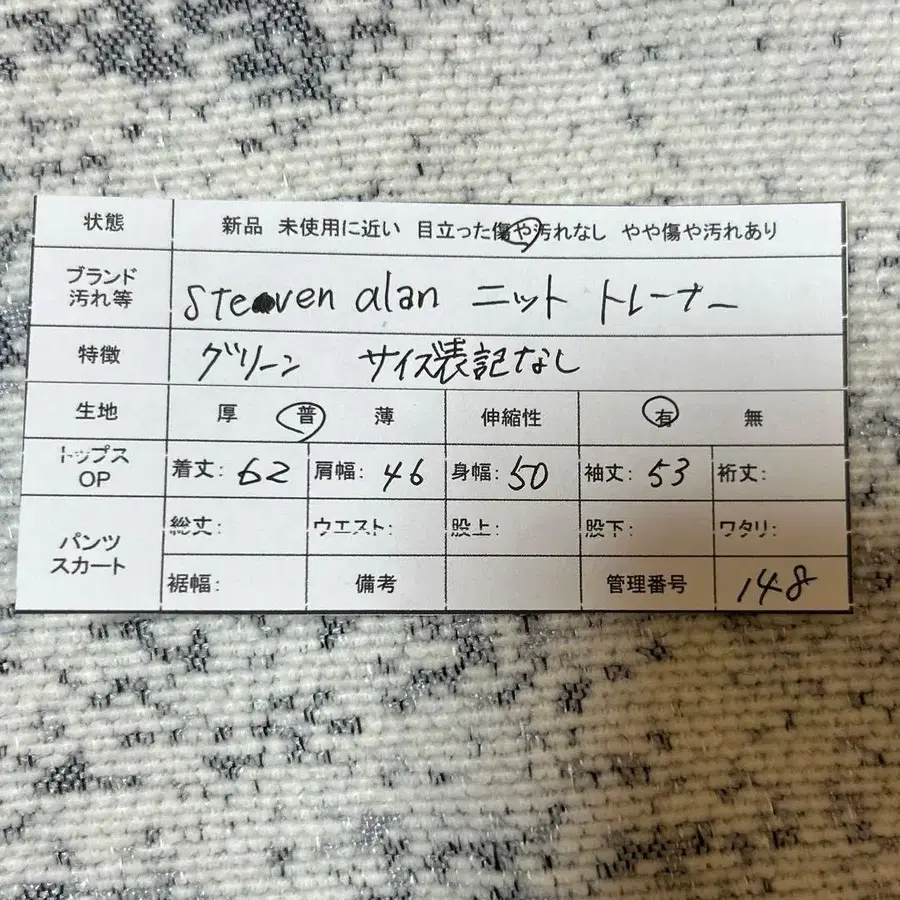 状態 新品 未使用に近い 目立った傷や汚れなし やや傷や汚れあり
ブランド
汚れ等 Steven alan ニット トレーナー
特徴 グリーン サイズ表記なし
生地 厚 普 薄 伸縮性 有 無
トップス
OP 着丈: 62 肩幅: 46 身幅: 50 袖丈: 53 裄丈:
パンツ
スカート 総丈: ウエスト: 股上: 股下: ワタリ:
裾幅: 備考 管理番号 148